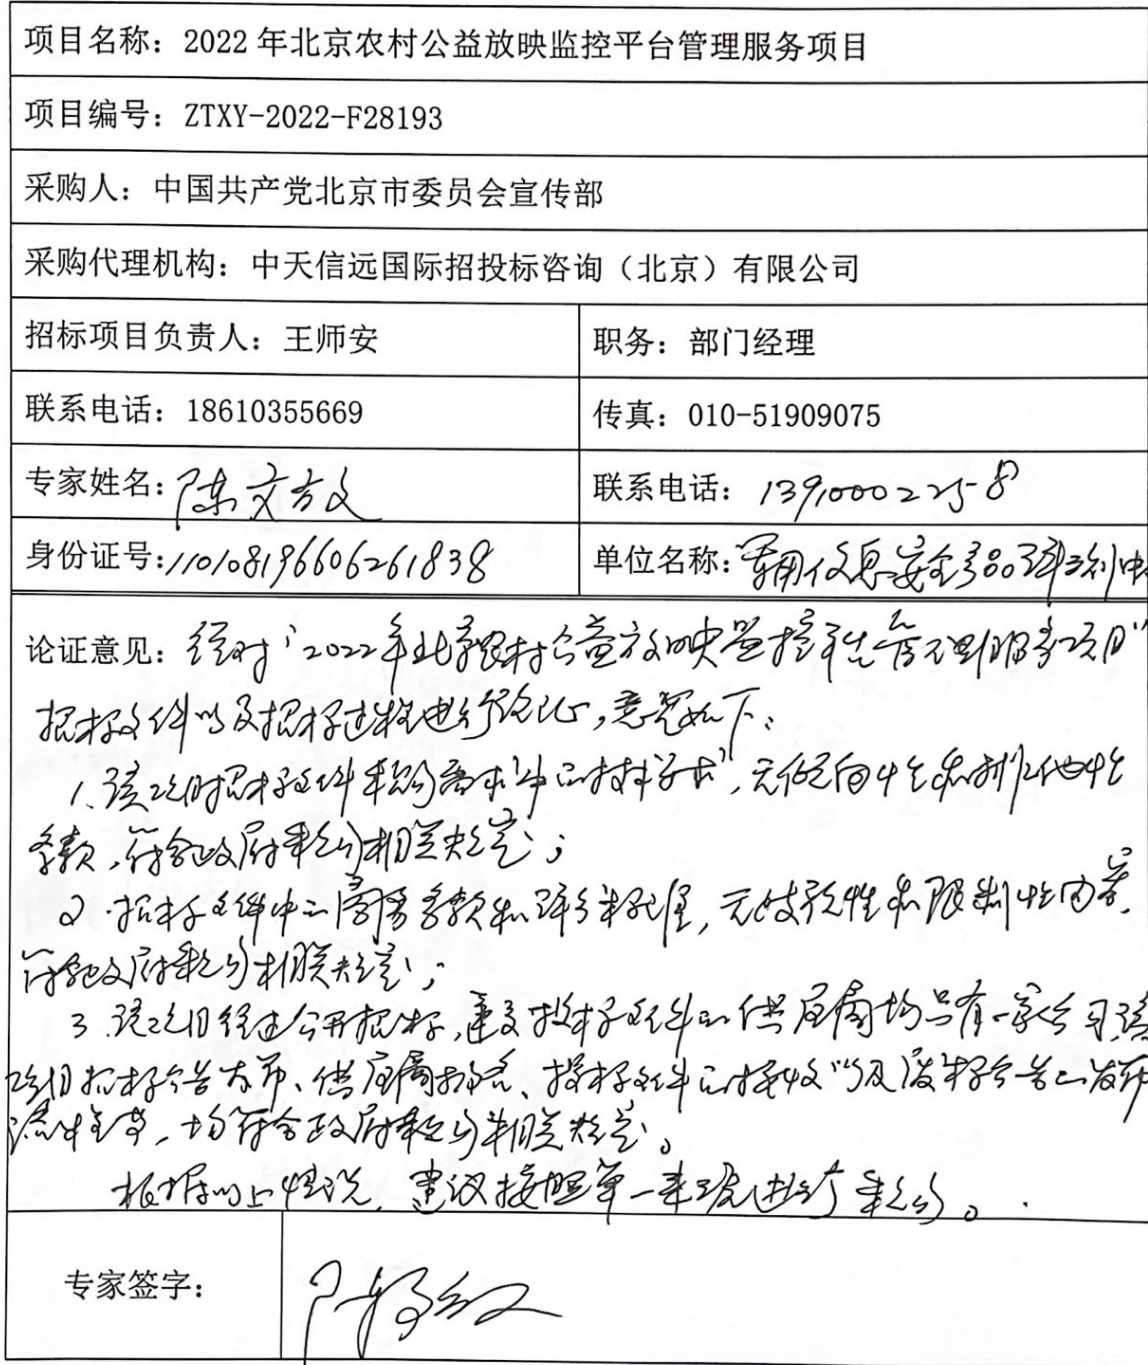 项目名称：2022年北京农村公益放映监控平台管理服务项目
项目编号：ZTXY-2022-F28193
采购人：中国共产党北京市委员会宣传部
采购代理机构：中天信远国际招投标咨询（北京）有限公司
招标项目负责人：王师安 职务：部门经理
联系电话：18610355669 传真：010-51909075
专家姓名： 联系电话：13910002258
身份证号：110108196606261838 单位名称：军用信息安全产品评测中
论证意见：经对“2022年北京农村公益放映监控平台管理服务项目”
招标文件以及招标过程进行论证，意见如下：
1.该项目招标文件采购需求中的技术要求，无倾向性和排他性
条款，符合政府采购相关规定；
2.招标文件中的商务条款和评分标准，无歧视性和限制性内容，
符合政府采购相关规定；
3.该项目经过公开招标，递交投标文件的供应商均只有一家公司，该
项目招标公告发布、供应商报名、投标文件的接收以及废标公告的发布
流程等，均符合政府采购相关规定。
根据以上情况，建议按照单一来源进行采购。
专家签字：